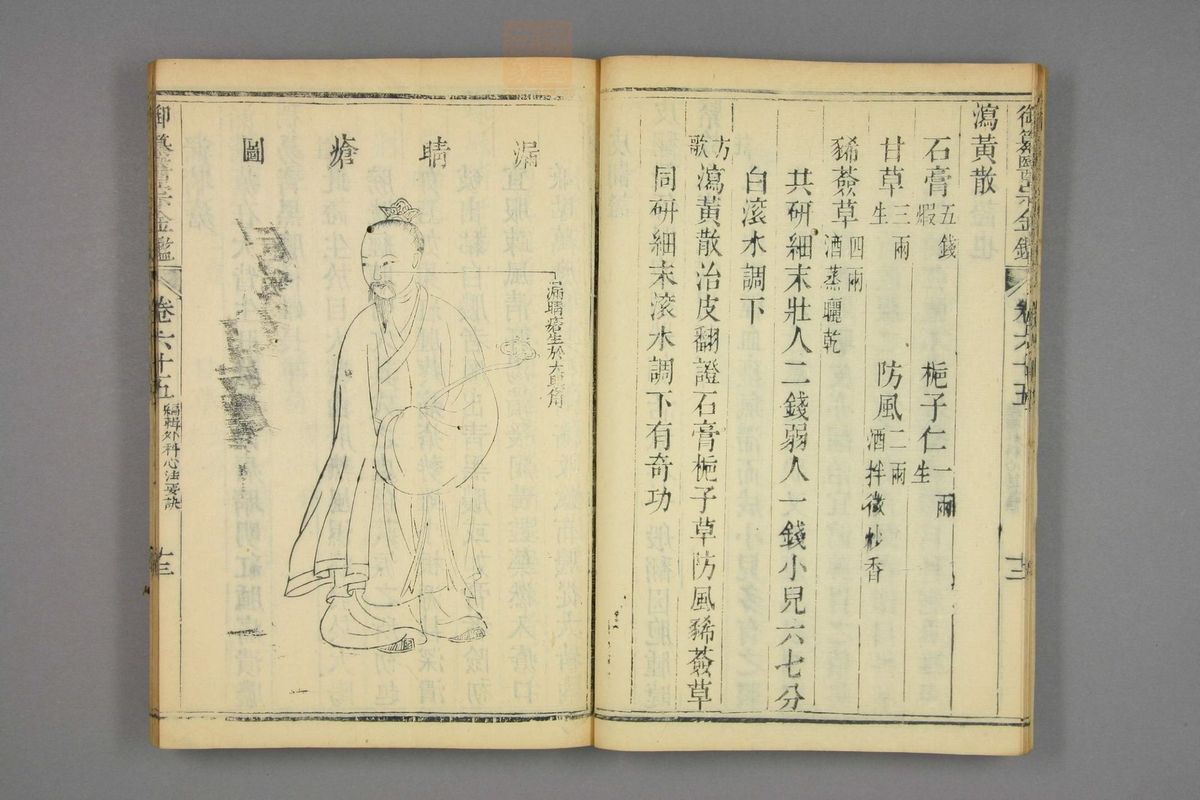 御纂醫宗金鑑 卷六十五 十二
瀉黃散
石膏五錢煅 梔子仁一兩生
甘草三兩生 防風二兩酒拌微炒香
豨薟草四兩酒蒸曬乾
共研細末壯人二錢弱人一錢小兒六七分
白滾水調下
方歌瀉黃散治皮翻證石膏梔子草防風豨薟草
同研細末滾水調下有奇功
漏睛瘡圖
漏睛瘡生於大眥角
御纂醫宗金鑑 卷六十五 編輯外科心法要訣 十三